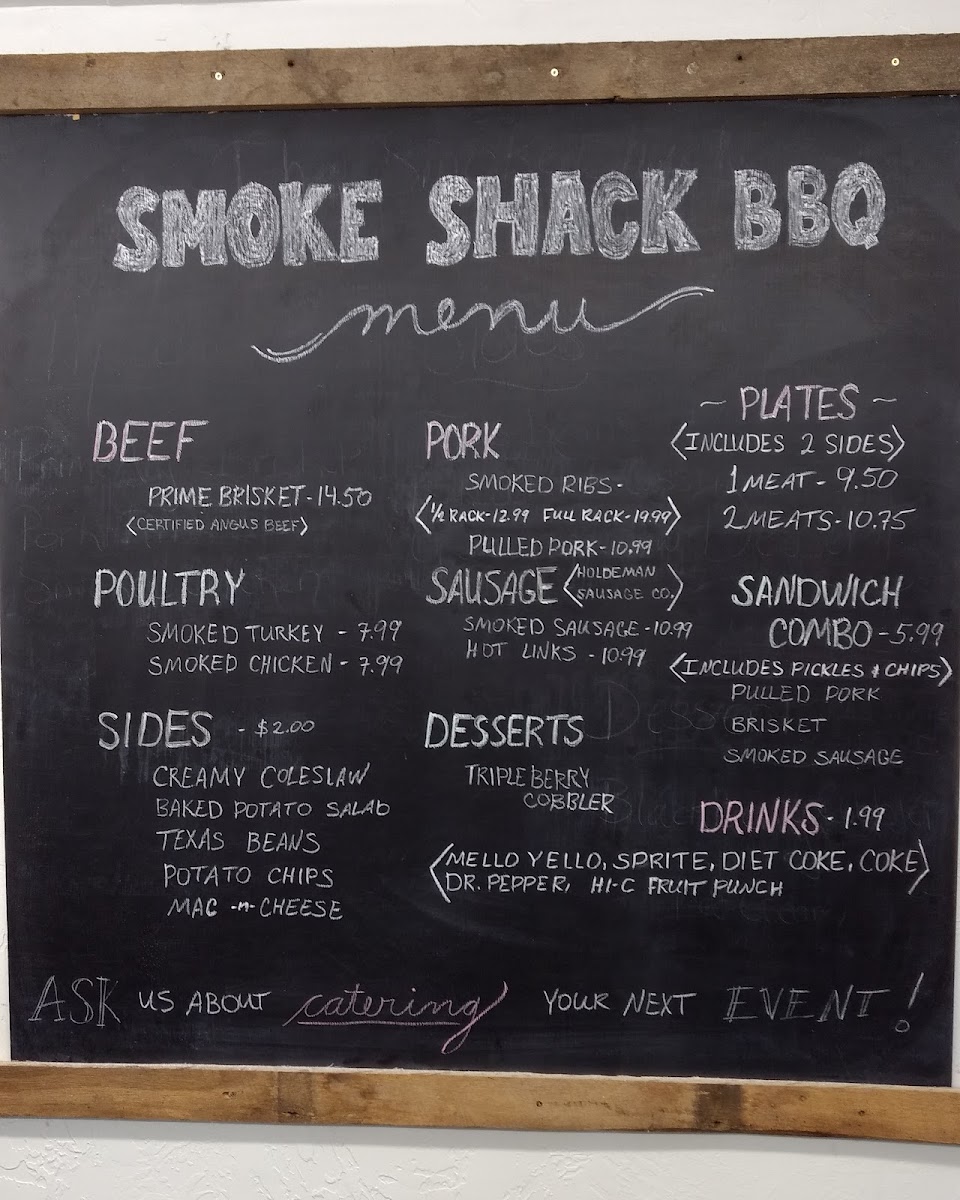 SMOKE SHACK BBQ
menu
BEEF
PRIME BRISKET - 14.50
<CERTIFIED ANGUS BEEF>
POULTRY
SMOKED TURKEY - 7.99
SMOKED CHICKEN - 7.99
SIDES - $2.00
CREAMY COLESLAW
BAKED POTATO SALAD
TEXAS BEANS
POTATO CHIPS
MAC -n- CHEESE
PORK
SMOKED RIBS -
<1/2 RACK-12.99 FULL RACK-19.99>
PULLED PORK - 10.99
SAUSAGE <HOLDEMAN
SAUSAGE CO.>
SMOKED SAUSAGE - 10.99
HOT LINKS - 10.99
DESSERTS
TRIPLE BERRY
COBBLER
~ PLATES ~
<INCLUDES 2 SIDES>
1 MEAT - 9.50
2 MEATS - 10.75
SANDWICH
COMBO - 5.99
<INCLUDES PICKLES & CHIPS>
PULLED PORK
BRISKET
SMOKED SAUSAGE
DRINKS - 1.99
<MELLO YELLO, SPRITE, DIET COKE, COKE>
DR. PEPPER, HI-C FRUIT PUNCH
ASK US ABOUT catering YOUR NEXT EVENT!